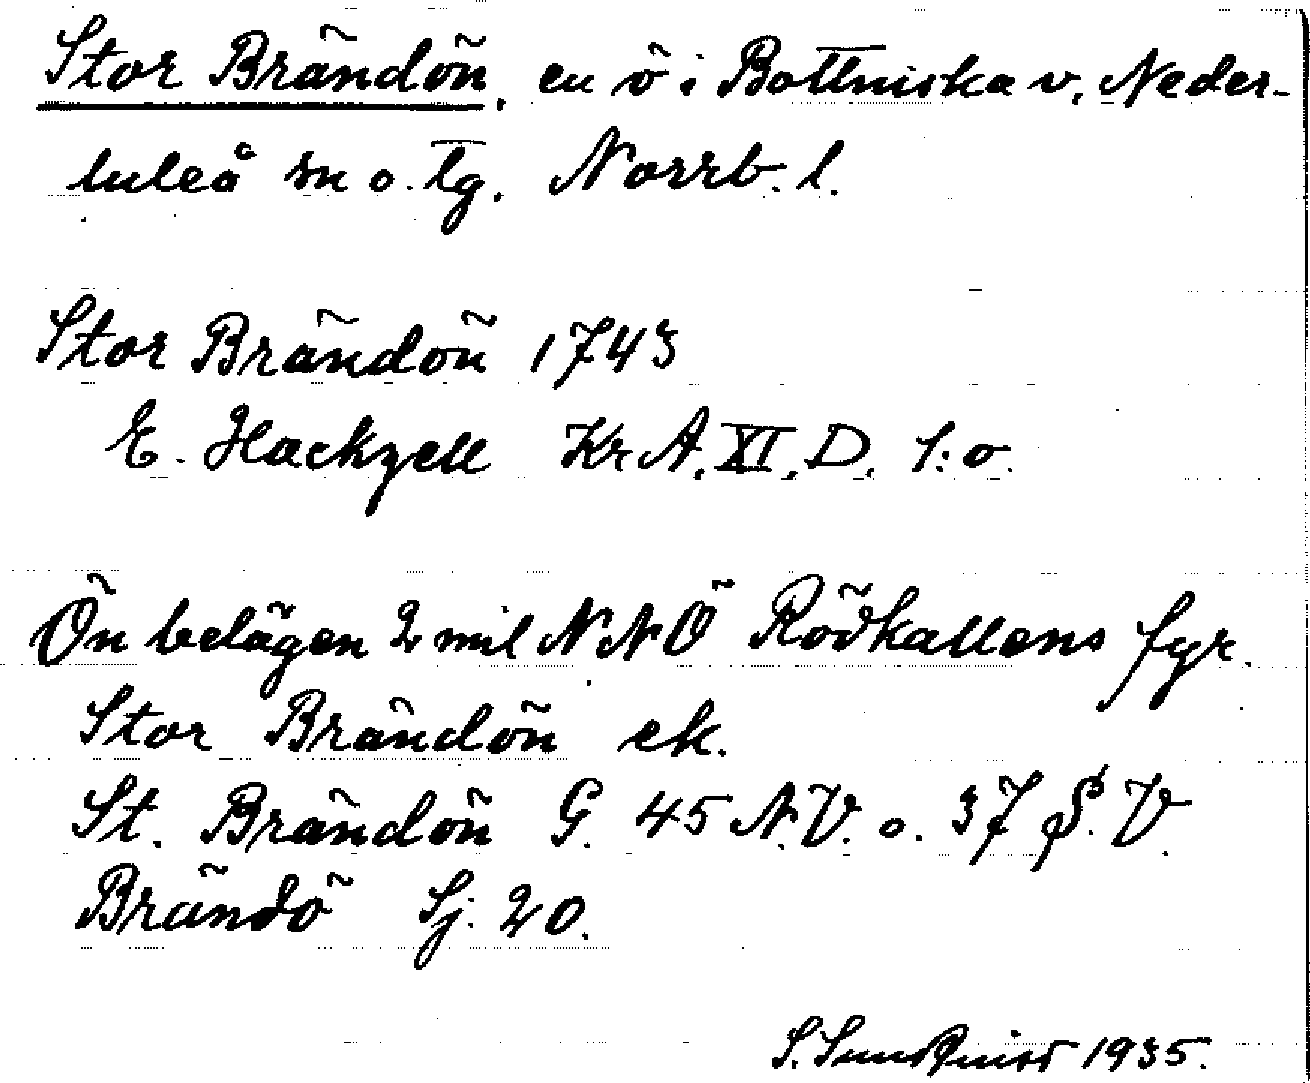 Stor Brändön, en ö i Bottniska v. Neder-
luleå sn o. tg. Norrb. l.
Stor Brändön 1743
E. Hackzell Kr A. XI. D. 1:o.
Ön belägen 2 mil NNÖ Rödkallens fyr.
Stor Brändön ek.
St. Brändön G. 45 N.V. o. 37 S.V.
Brändö Sj. 20.
S. Sundquist 1935.